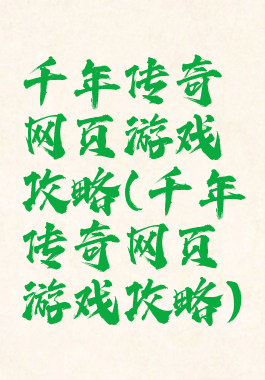 千年传奇
网页游戏
攻略(千年
传奇网页
游戏攻略)